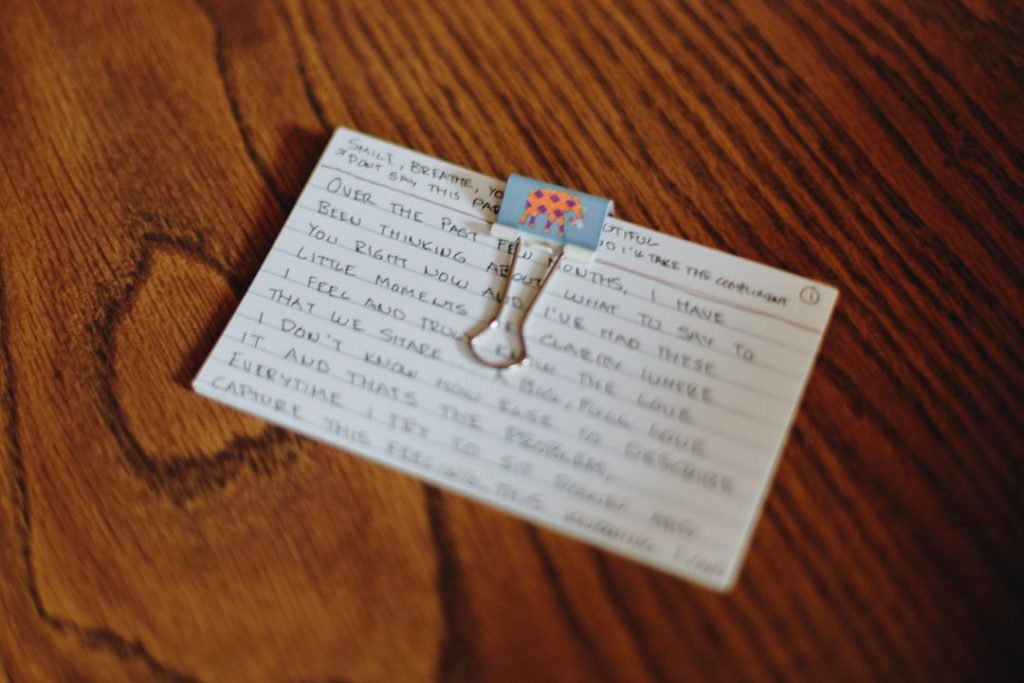 SMILE, BREATHE, YO UTIFUL
*DON'T SAY THIS PAR D I'LL TAKE THE COMPLIMENT ①
OVER THE PAST FEW MONTHS, I HAVE
BEEN THINKING ABOUT WHAT TO SAY TO
YOU RIGHT NOW AND I'VE HAD THESE
LITTLE MOMENTS OF CLARITY WHERE
I FEEL AND TRULY KNOW THE LOVE
THAT WE SHARE. A BIG, FULL LOVE
I DON'T KNOW HOW ELSE TO DESCRIBE
IT AND THATS THE PROBLEM,
EVERYTIME I TRY TO SIT DOWN AND
CAPTURE THIS FEELING THIS